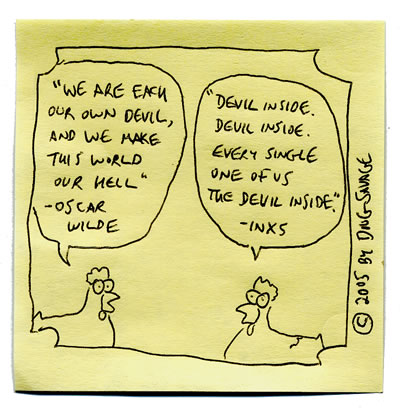 "WE ARE EACH
OUR OWN DEVIL,
AND WE MAKE
THIS WORLD
OUR HELL"
-OSCAR
WILDE
"DEVIL INSIDE.
DEVIL INSIDE.
EVERY SINGLE
ONE OF US
THE DEVIL INSIDE."
-INXS
© 2005 BY DING-SAVAGE